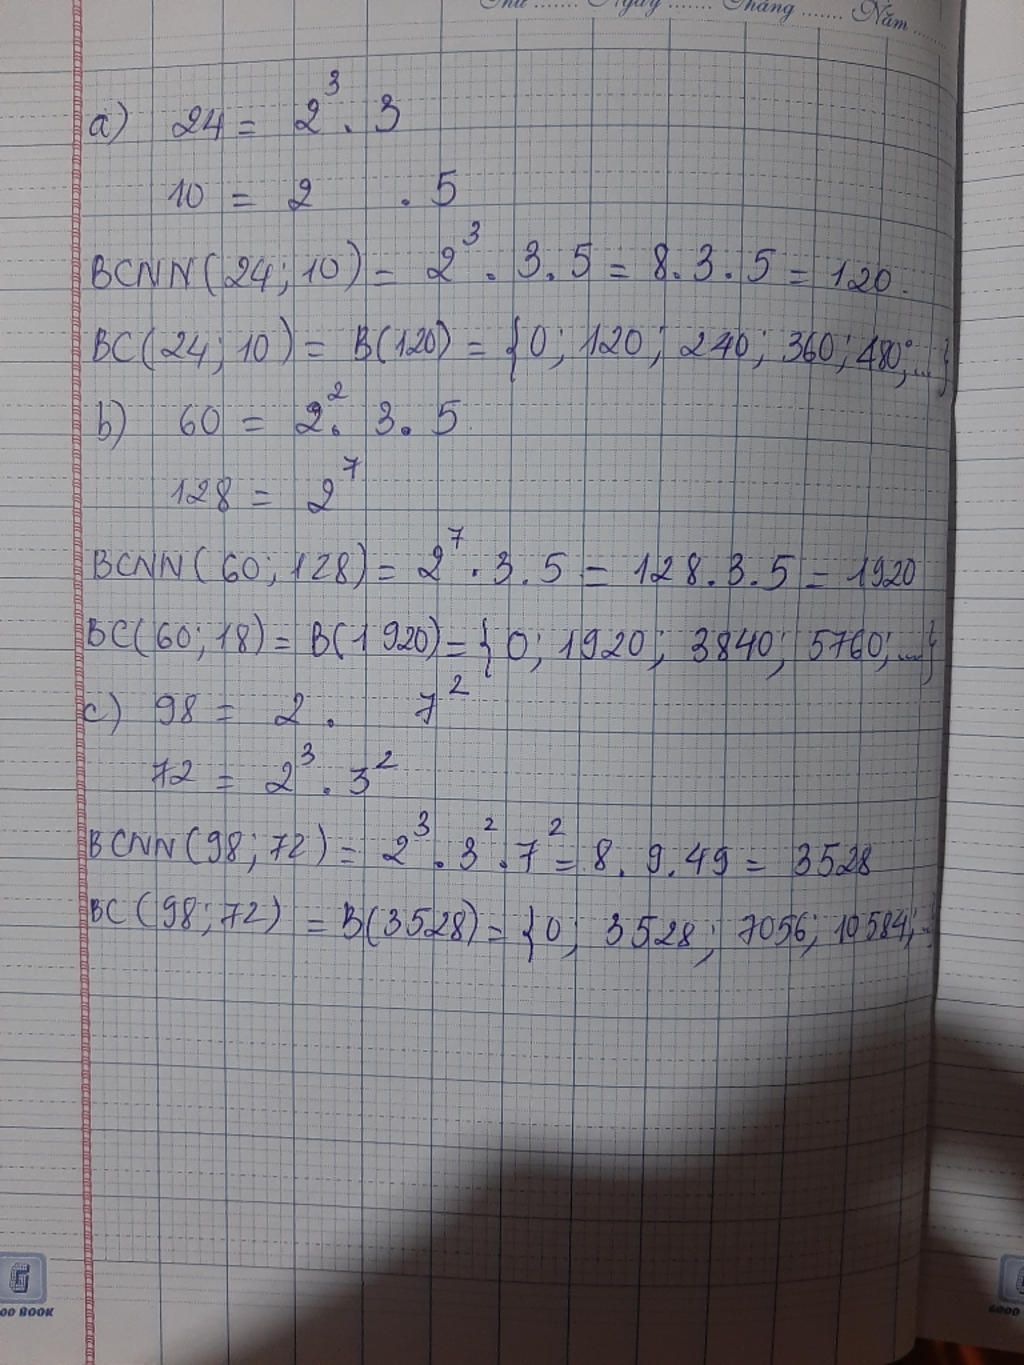 Thứ ....... Ngày ....... Tháng ....... Năm .......
a) 24 = 2³ . 3
10 = 2 . 5
BCNN(24; 10) = 2³ . 3 . 5 = 8 . 3 . 5 = 120.
BC(24; 10) = B(120) = {0; 120; 240; 360; 480; ...}
b) 60 = 2² . 3 . 5
128 = 2⁷
BCNN(60; 128) = 2⁷ . 3 . 5 = 128 . 3 . 5 = 1920
BC(60; 18) = B(1920) = {0; 1920; 3840; 5760; ...}
c) 98 = 2 . 7²
72 = 2³ . 3²
BCNN(98; 72) = 2³ . 3² . 7² = 8 . 9 . 49 = 3528
BC(98; 72) = B(3528) = {0; 3528; 7056; 10584; ...}
G
OOD BOOK
GOOD